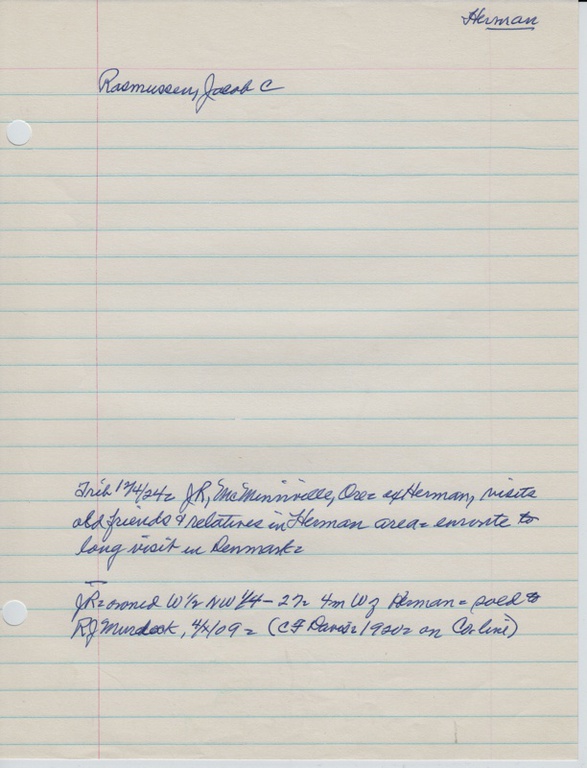 Herman
Rasmussen, Jacob C
Trib 12/4/24= JR, McMinnville, Ore= ex Herman, visits
old friends & relatives in Herman area= enroute to
long visit in Denmark=
JR= owned W 1/2 NW 1/4 - 27= 4m W of Herman= sold to
RJ Murdock, 4/x/09= (CF Davis= 1920= on Co-line)